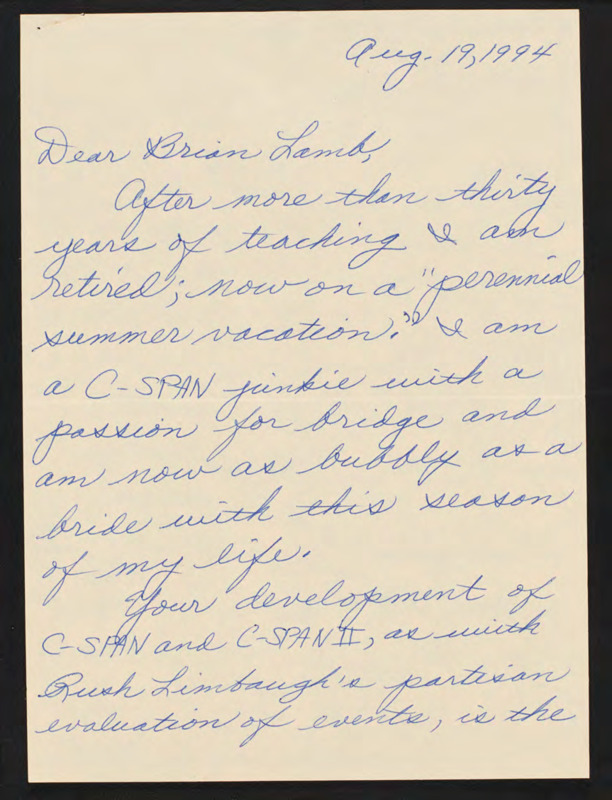 Aug. 19, 1994
Dear Brian Lamb,
After more than thirty
years of teaching I am
retired; now on a "perennial
summer vacation." I am
a C-SPAN junkie with a
passion for bridge and
am now as bubbly as a
bride with this season
of my life.
Your development of
C-SPAN and C-SPAN II, as with
Rush Limbaugh's partisan
evaluation of events, is the